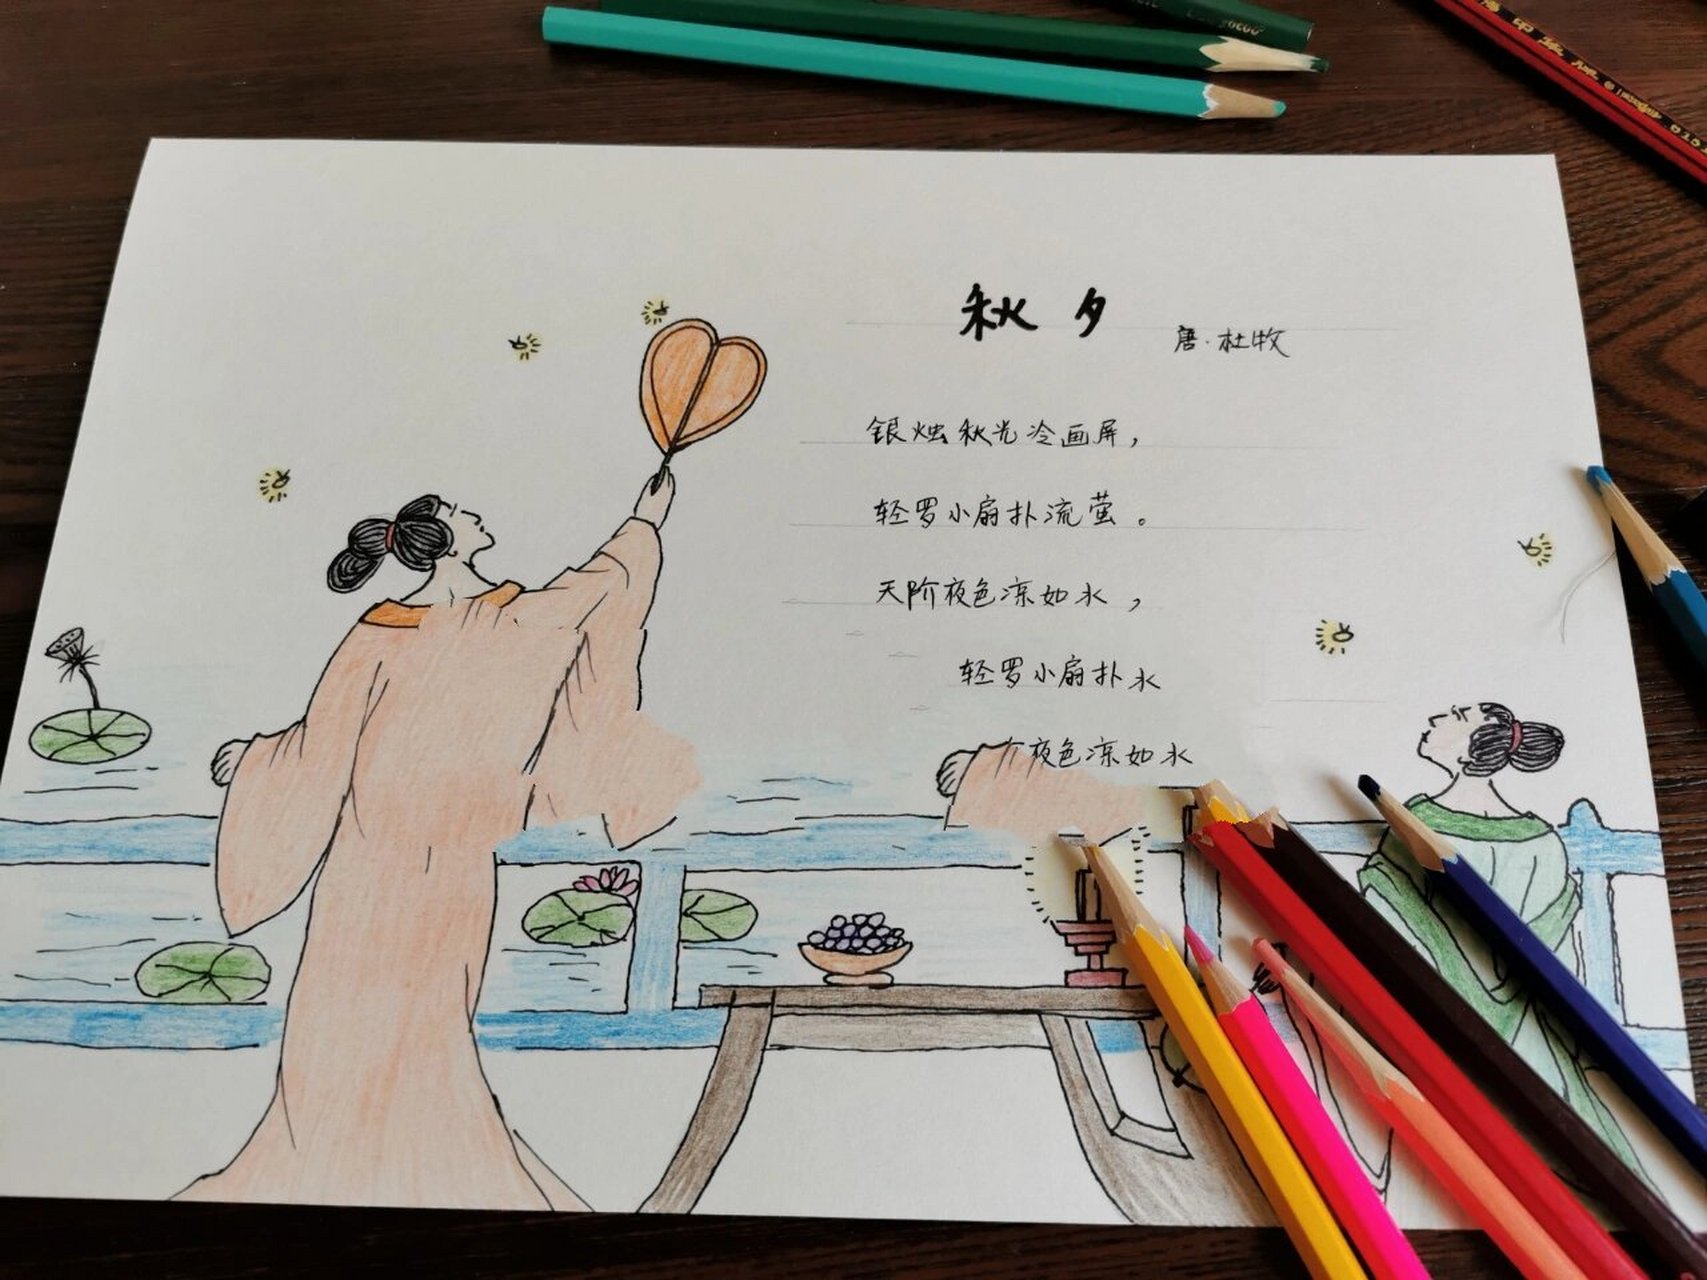 秋夕
唐·杜牧
银烛秋光冷画屏，
轻罗小扇扑流萤。
天阶夜色凉如水，
轻罗小扇扑水
夜色凉如水